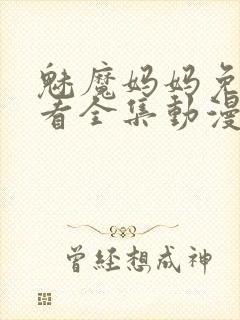 魅魔妈妈免
看全集動漫
曾经想成神